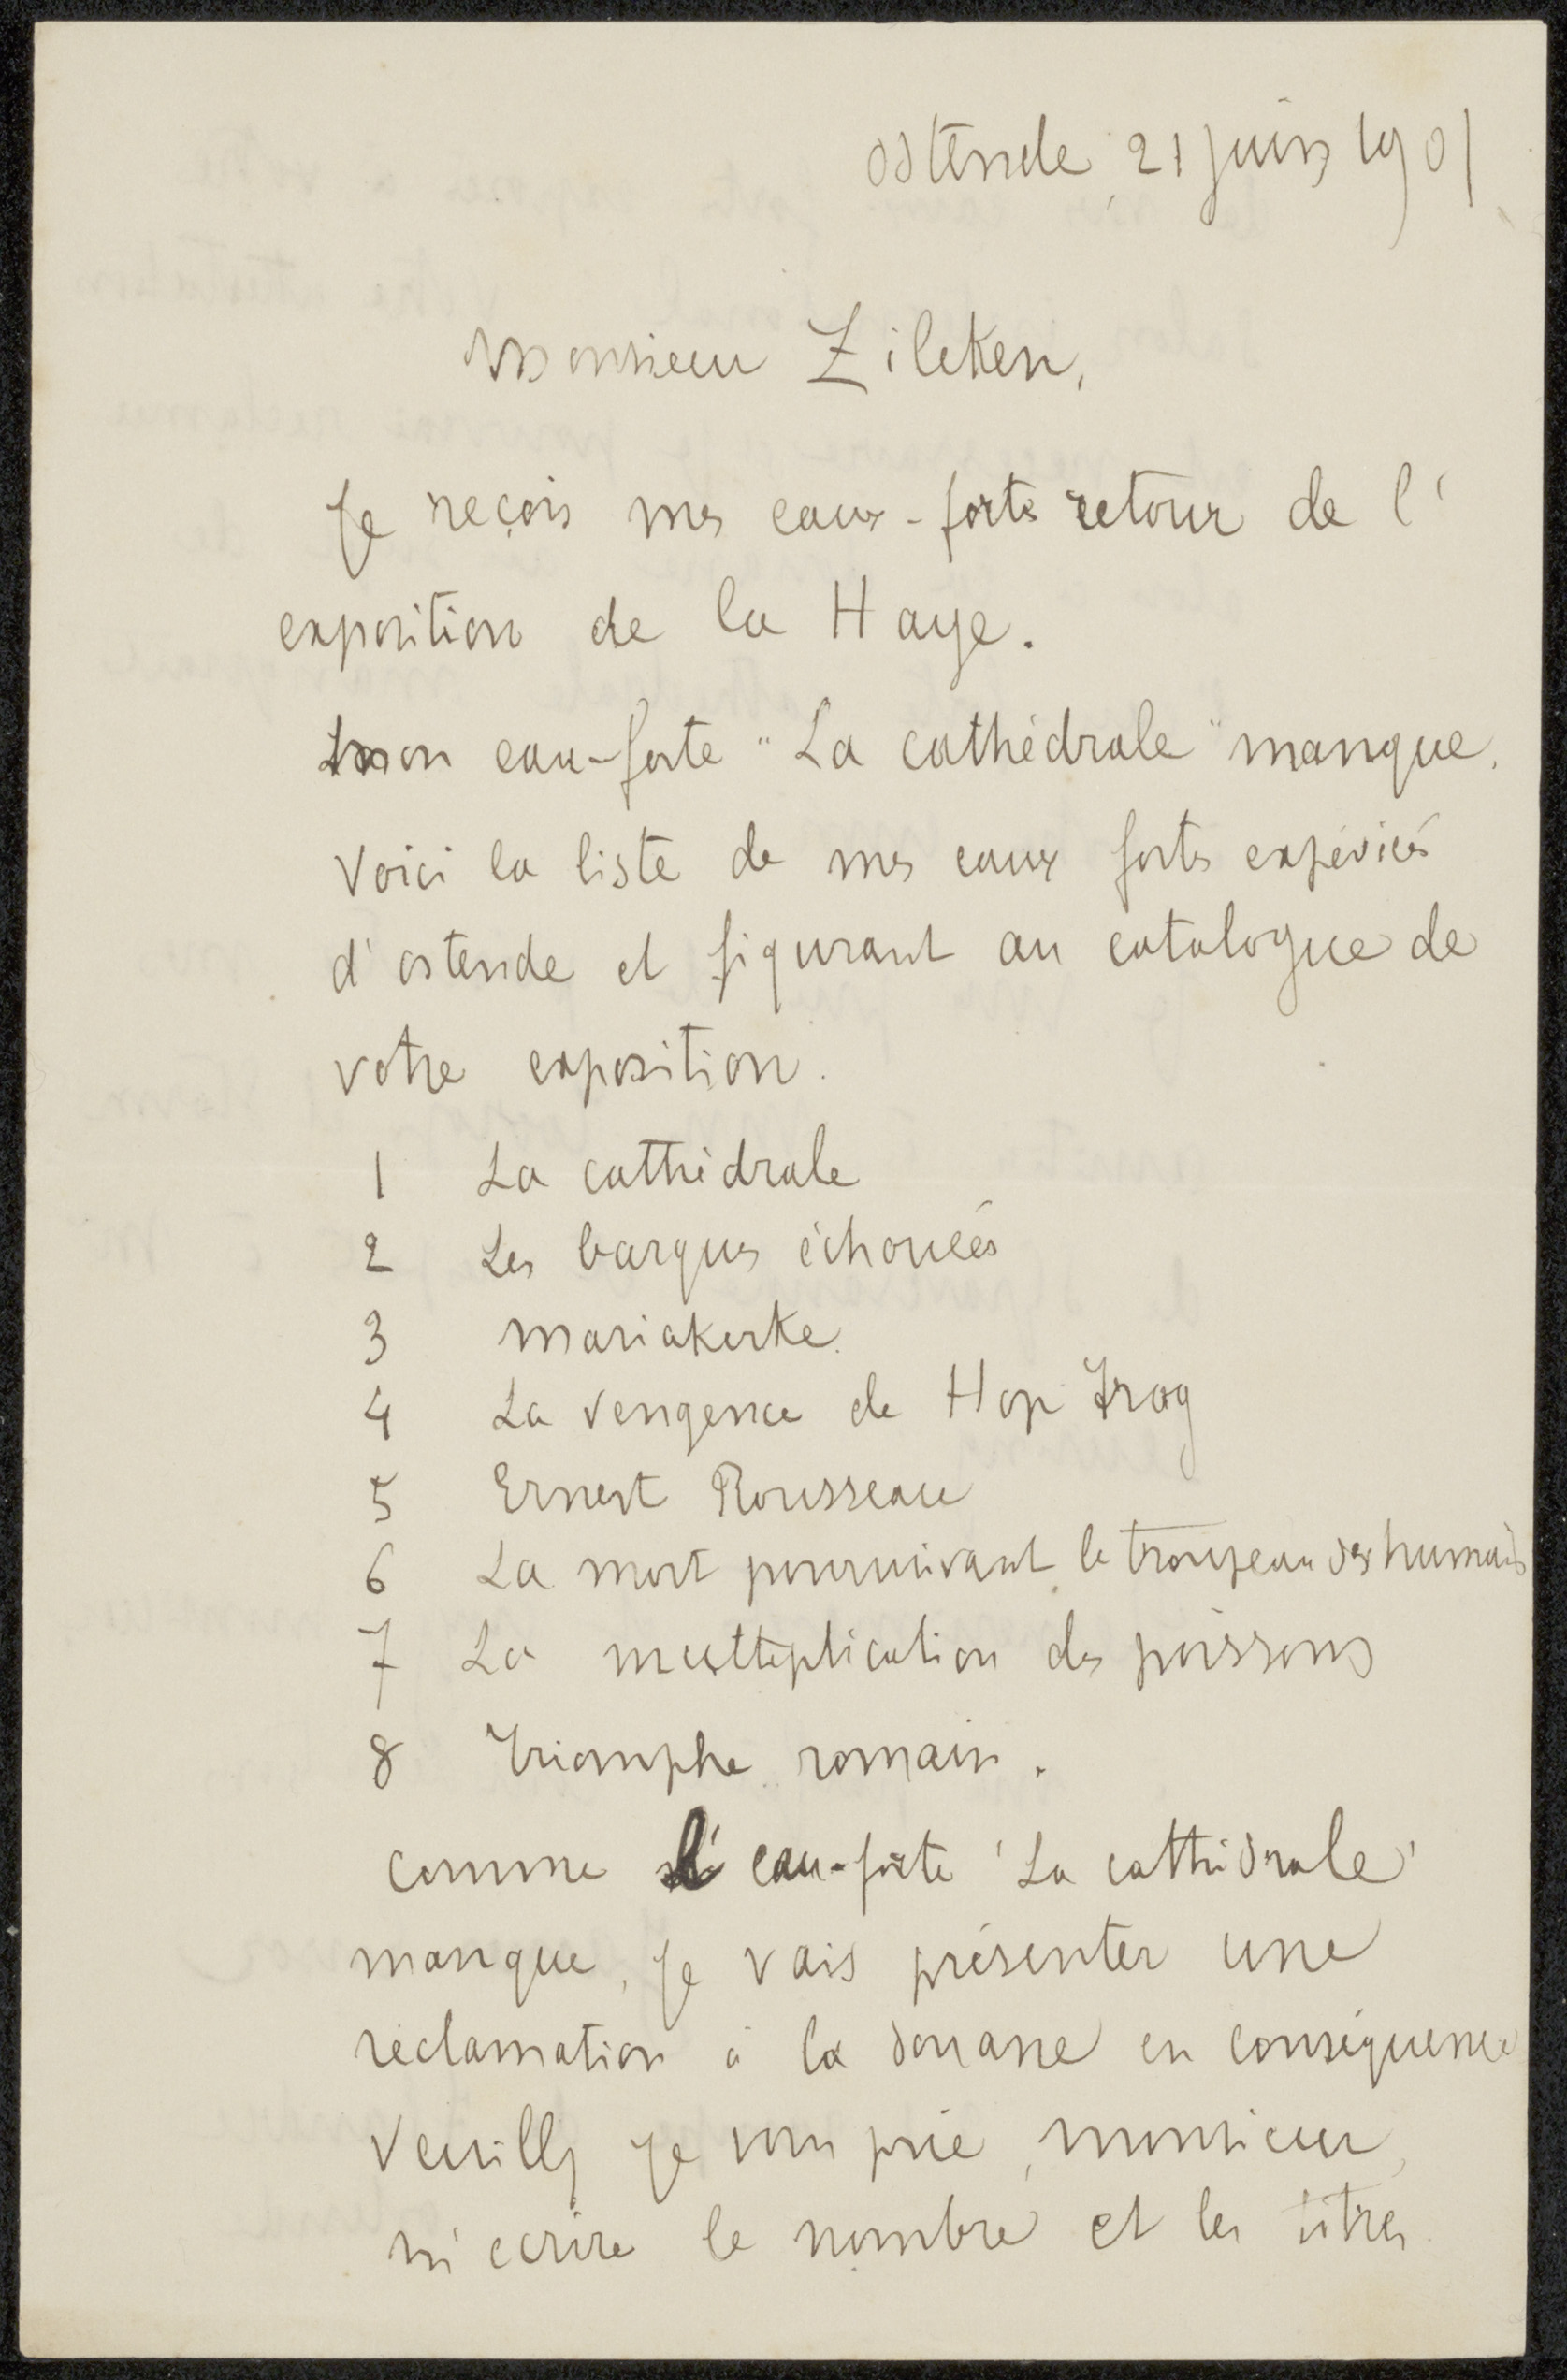 Ostende, 21 juin 1901
Monsieur Zilcken,
Je reçois mes eaux-fortes retour de l'
exposition de la Haye.
Mon eau-forte "La cathédrale" manque.
Voici la liste de mes eaux fortes expédiés
d'ostende et figurant au catalogue de
votre exposition.
1 La cathédrale
2 Les barques échouées
3 Mariakerke.
4 La vengence de Hop Frog
5 Ernest Rousseau
6 La mort poursuivant le troupeau des humains
7 La multiplication des poissons
8 Triomphe romain.
Comme l'eau-forte 'La cathédrale'
manque, je vais présenter une
réclamation à la douane en conséquence
Veuillez je vous prie, monsieur,
m'ecrire le nombre et les titres